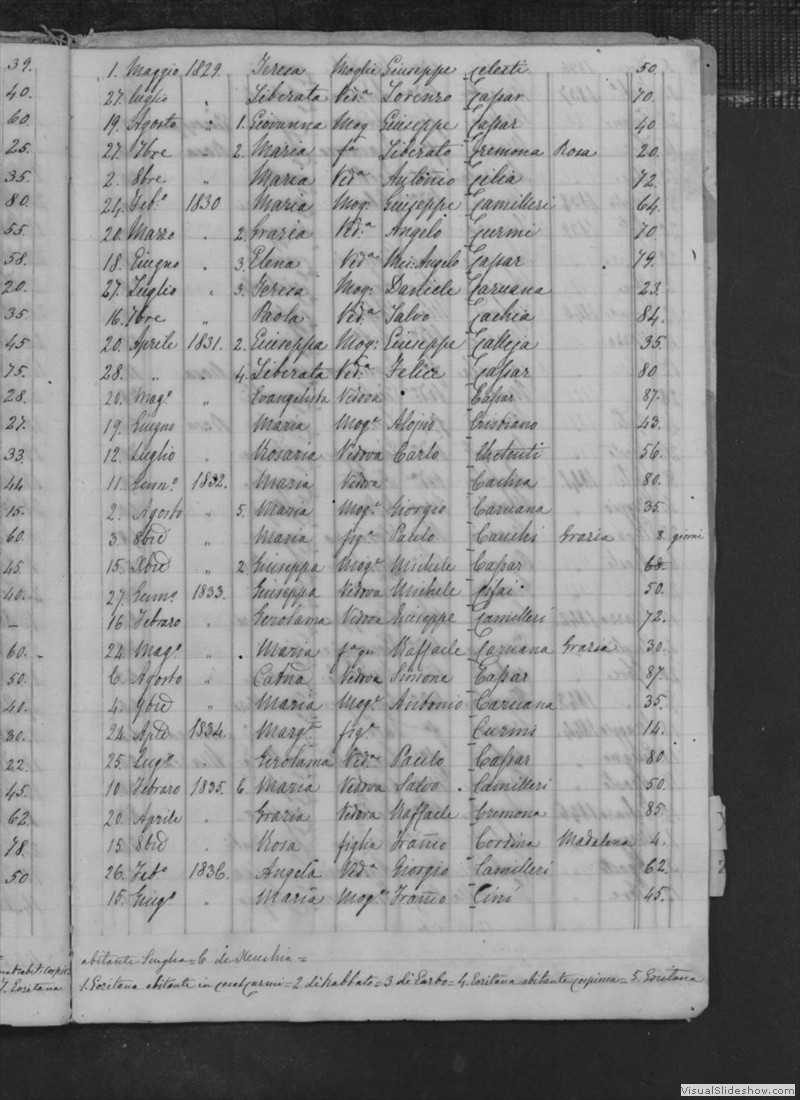 39. 1. Maggio 1829. Teresa Moglie Giuseppe Celesti 50.
40. 27. Luglio " Liberata Ved.ª Lorenzo Caſsar 70.
60. 19. Agosto " 1. Giovanna Mog Giuseppe Caſsar 40
25. 27. 7bre " 2. Maria fª Liberato Cremona Rosa 20.
35. 2. 8bre " Maria Vedª Antonio Cilia 72.
80. 24. Feb.º 1830 Maria Mog: Giuseppe Camilleri 64.
55. 20. Marzo . 2. Grazia Ved.ª Angelo Curmi 70
58. 18. Giugno . 3. Elena Vedª Mic. Angelo Caſsar 79.
20. 27. Luglio . 3. Teresa Mog: Daniele Caruana 23.
35 16. 7bre " Paola Vedª Salvo Cachia 84.
45 20. Aprile 1831. 2. Giuseppa Mog: Giuseppe Calleja 35.
75. 28. " " 4. Liberata Ved.ª Felice Caſsar 80
28. 20. Magº " Evangelista Vedova Caſsar 87.
27. 19. Giugno . Maria Mog.e Aloisio Cristiano 43.
33. 12. Luglio . Rosaria Vedova Carlo Chetcuti 56.
44 11. Genn.º 1832. Maria Vedova Cachia 80.
15. 2. Agosto " 5. Maria Mog.e Giorgio Caruana 35
60. 3. 8bre " Maria fig.ª Paulo Grazia 8. giorni
45. 15. Xbre 2 Giuseppa Mog.e Michele Caſsar 68.
40. 27. Genn.º 1833. Giuseppa Vedova Michele 50.
- 16. Febraro . Gerolama Vedova Giuseppe Camilleri 72.
60. 24. Mag.º " . Maria Raffaele Caruana Grazia 30.
50. 6. Agosto " Catna Vedova Simone Caſsar 87.
40. 4. 9bre " Maria Mog.e Antonio Caruana 35.
30. 24. Aple 1834. Marg.ta fig.ª Curmi 14.
22. 25. Lug.º . Gerolama Ved.ª Paulo Caſsar 80
45. 10. Febraro 1835. 6. Maria Vedova Salvo . Camilleri 50.
62. 20. Aprile . Grazia Vedova Raffaele Cremona 85.
78. 15. 8bre . Rosa figlia Franco Cordina Madalena 4.
50 26. Feb.º 1836. Angela Ved.ª Giorgio Camilleri 62.
15. Giug.º Maria Mog.e Franco Cini 45.
abitante Senglea = 6 di Vecchia =
7. Zoritana 1. Zoritana abitante in Casal Curmi = 2. di Rabbato = 3 di Zarbo = 4. Zoritana abitante Cospicua = 5. Zoritana
VisualSlideshow.com